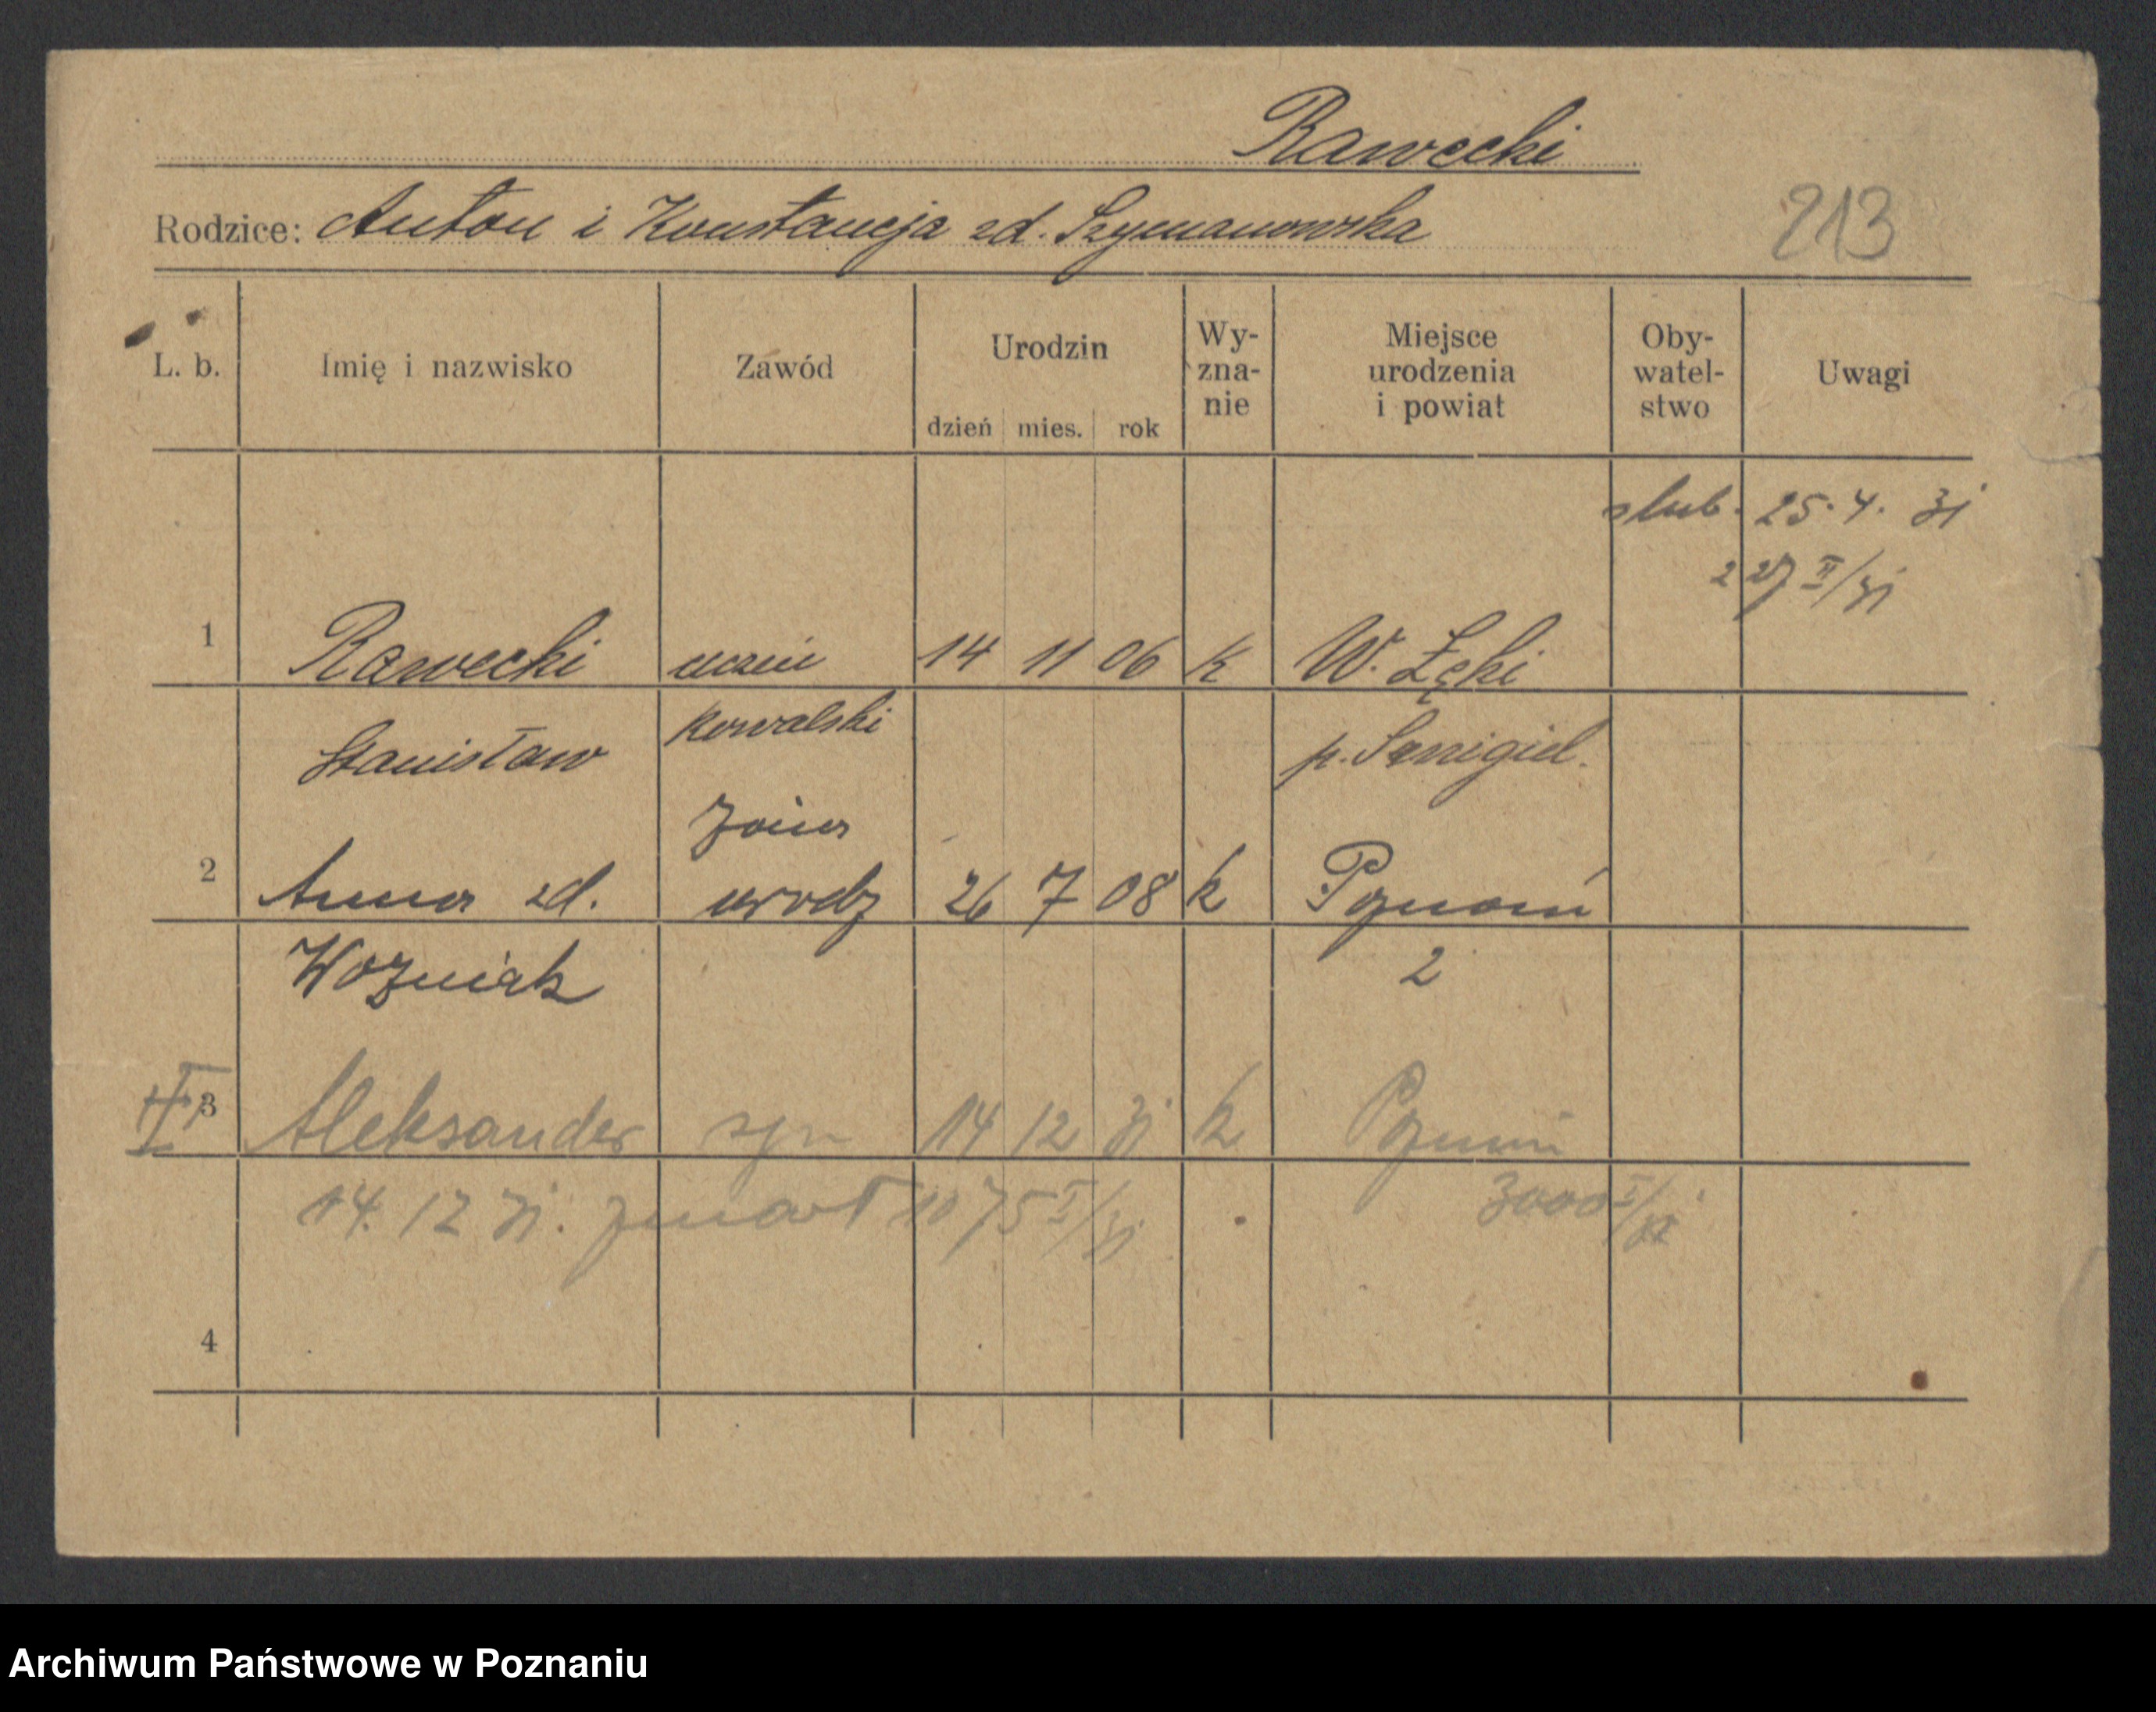 Rawecki
Rodzice: Anton i Konstancja zd. Szymanowska
213
L. b. Imię i nazwisko Zawód Urodzin dzień mies. rok Wy-zna-nie Miejsce urodzenia i powiat Oby-watel-stwo Uwagi
slub. 25. 4. 31
227 II/31
1 Rawecki uczeń 14 11 06 k W. Łęki
Stanisław kowalski p. Śmigiel.
żona
2 Anna zd. urodz 26 7 08 k Poznań
Wozniak 2
3 Aleksander syn 14 12 31 k Poznań
14. 12 31. zmarł 1075 I/31 3000 I/31
4
Archiwum Państwowe w Poznaniu